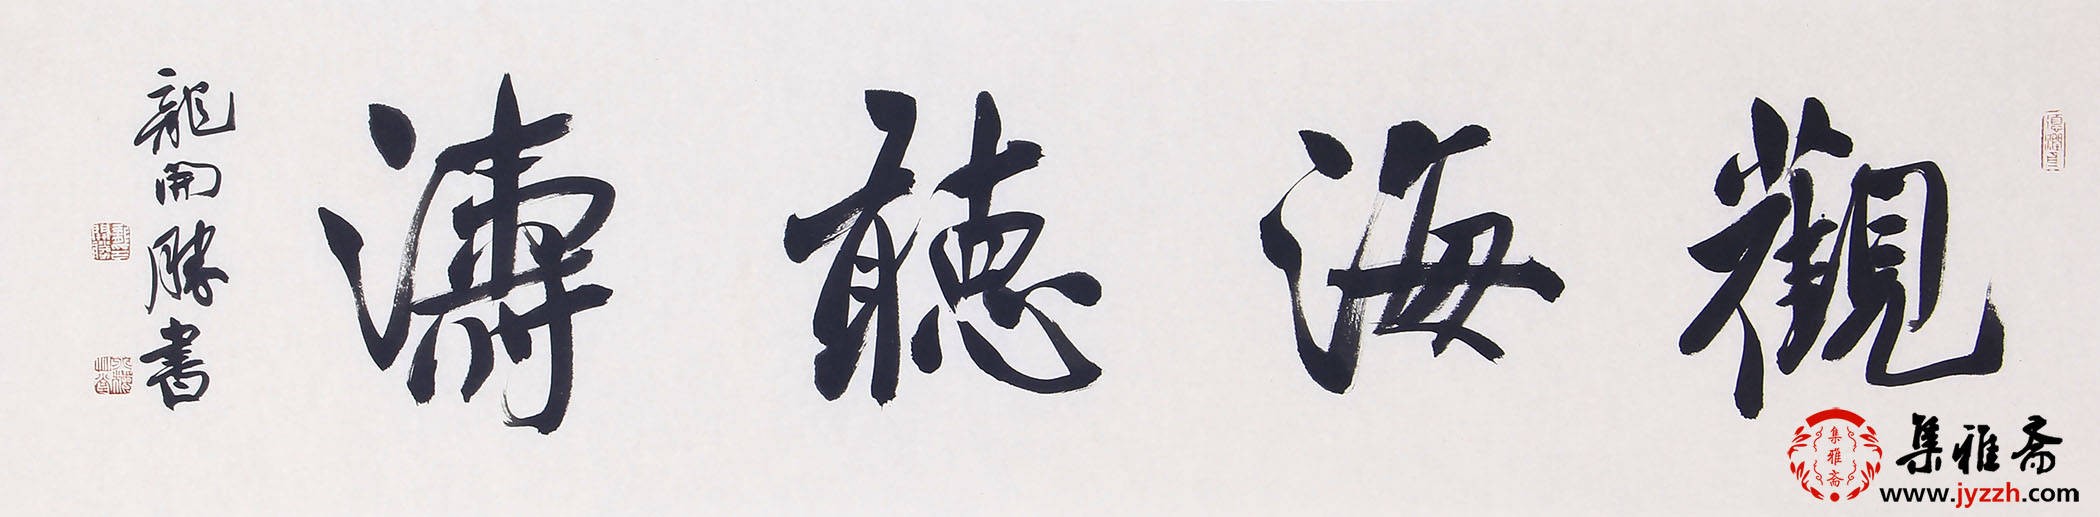 觀海聽濤
龍開勝書
集雅斋
集雅斋
www.jyzzh.com